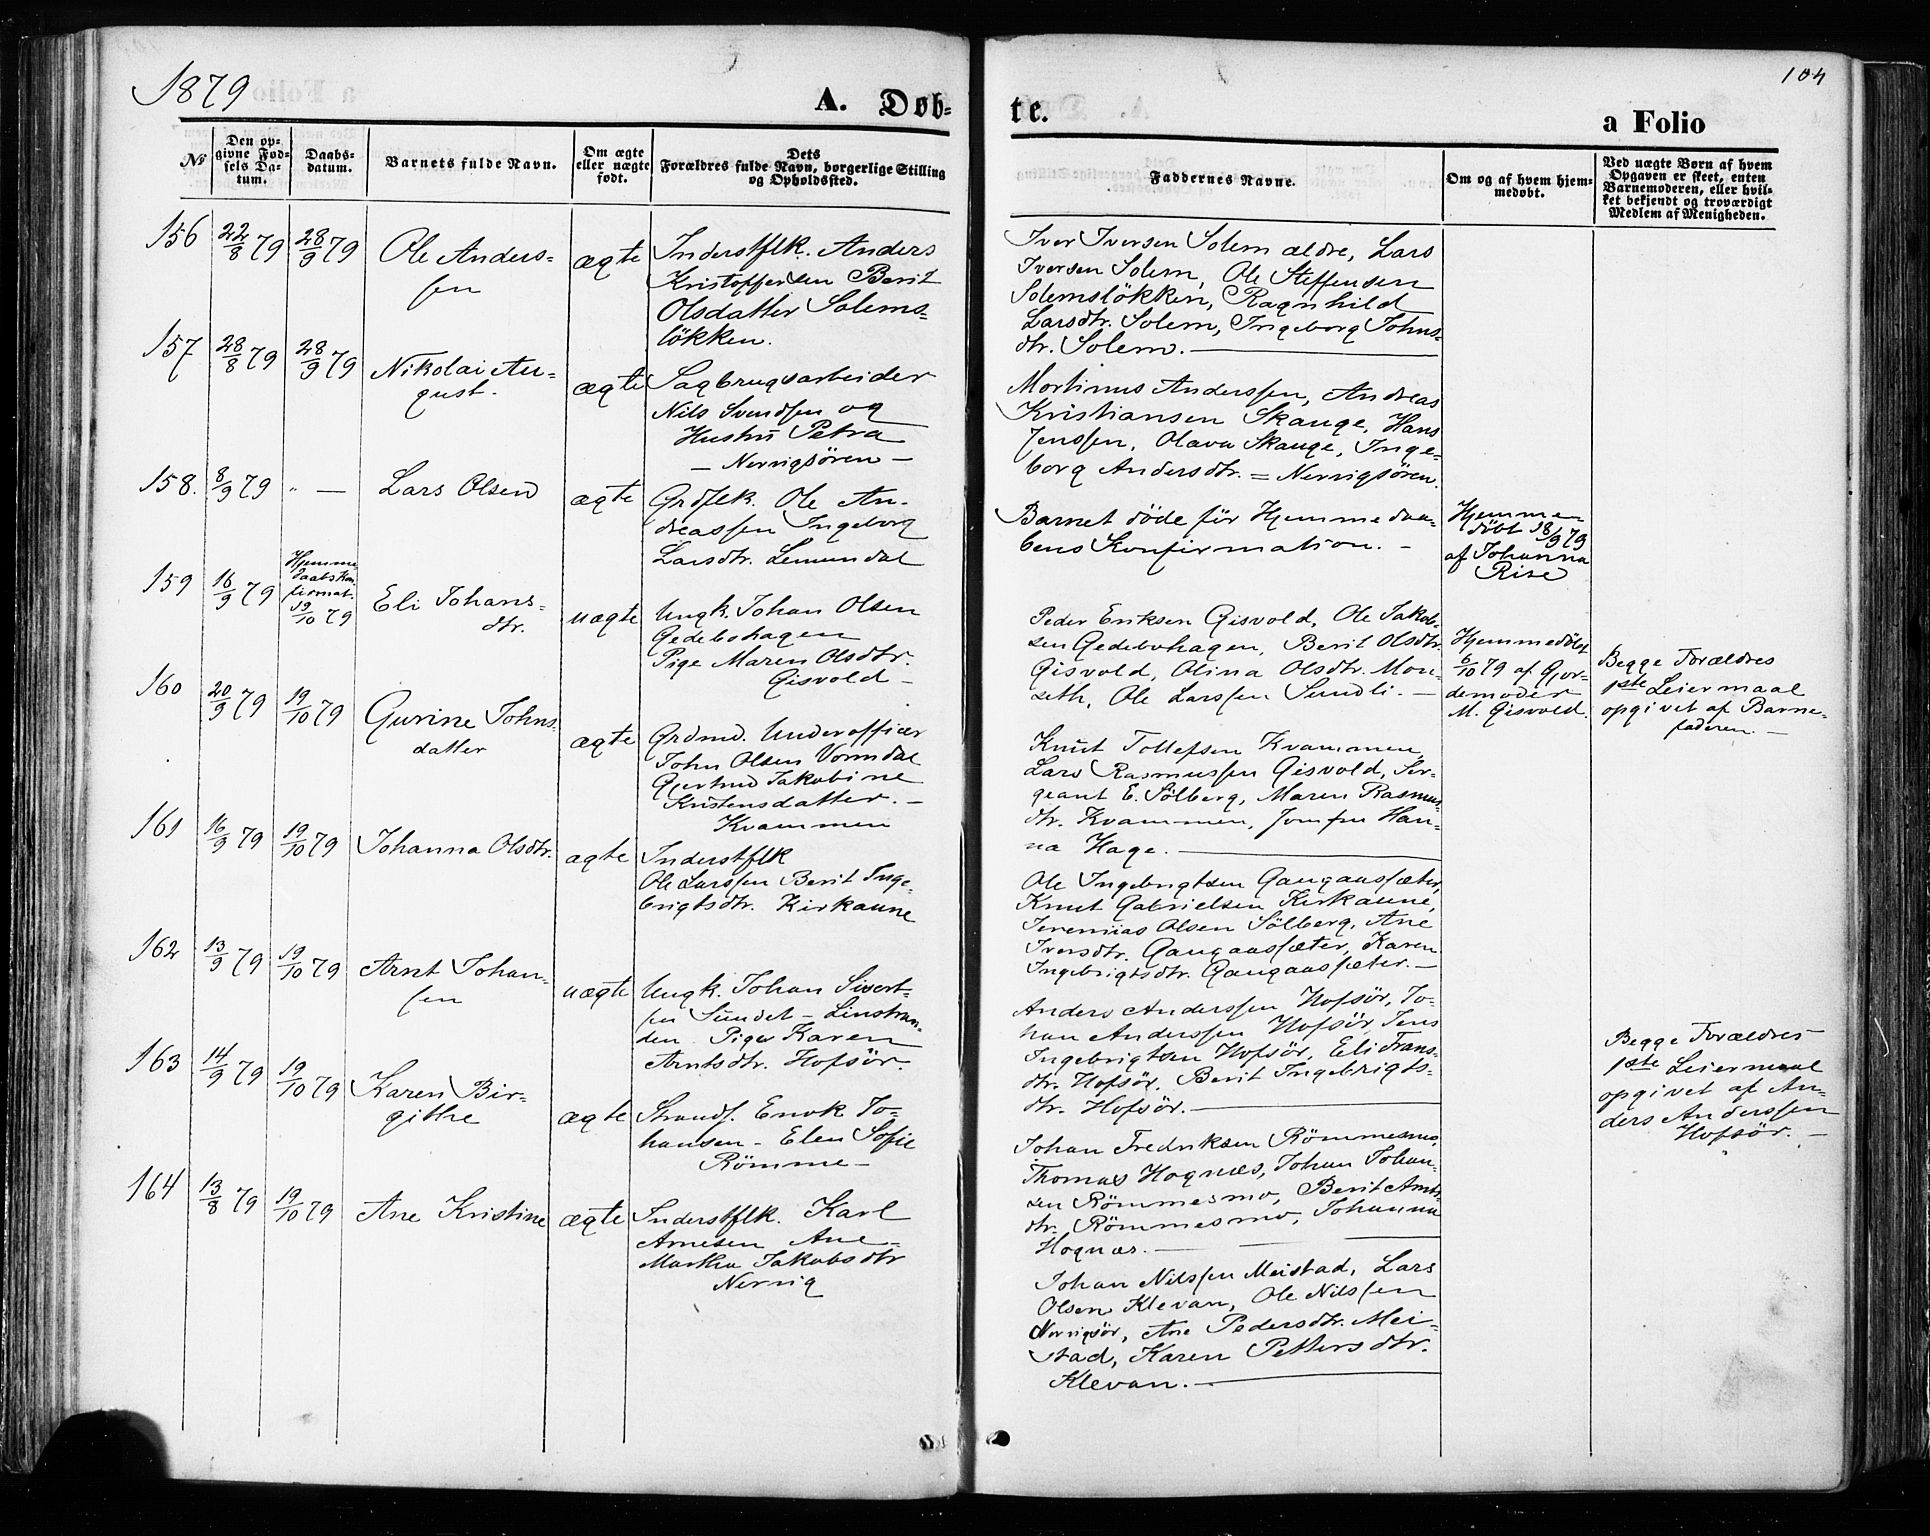 1879
A. Døb-
te.
104
a Folio
№
Den op-
givne Fød-
sels Da-
tum.
Daabs-
datum.
Barnets fulde Navn.
Om ægte
eller uægte
født.
Dets
Forældres fulde Navn, borgerlige Stilling
og Opholdssted.
Faddernes Navne.
Om og af hvem hjem-
medøbt.
Ved uægte Børn af hvem
Opgaven er skeet, enten
Barnemoderen, eller hvil-
ket bekjendt og troværdigt
Medlem af Menigheden.
156
22/8 79
28/9 79
Ole Anders-
sen
ægte
Inderstflk. Anders
Kristoffersen Berit
Olsdatter Solems-
løkken.
Iver Iversen Solem ældre, Lars
Iversen Solem, Ole Steffensen
Solemsløkken, Ragnhild
Larsdtr. Solem, Ingeborg Johns-
dtr. Solem.
157
28/8 79
28/9 79
Nikolai Au-
gust.
ægte
Sagbrugsarbeider
Nils Svendsen og
Hustru Petra
— Nervigsøren —
Mortinus Anderssen, Andreas
Kristiansen Skauge, Hans
Jenssen, Olava Skauge, Inge-
borg Andersdtr. = Nervigsøren.
158.
8/9 79
" —
Lars Olsen
ægte
Grdflk. Ole An-
dreassen Ingeborg
Larsdtr. Lemundal
Barnet døde før Hjemmedaa-
bens Konfirmation. —
Hjemme-
døbt 18/9 79
af Johanna
Rise
159
16/9 79
Hjemme
daabs Kon-
firmat.
19/10 79
Eli Johans-
dtr.
uægte
Ungk. Johan Olsen
Gedebohagen
Pige Maren Olsdtr.
Gisvold —
Peder Eriksen Gisvold, Ole Jakob-
sen Gedebohagen, Berit Olsdtr.
Gisvold, Olina Olsdtr. Mon-
seth, Ole Larssen Sundli. —
Hjemmedøbt
6/10 79 af Gjor-
demoder
M. Gisvold.
Begge Forældres
1ste Leiermaal
opgivet af Barne-
faderen. —
160
20/9 79
19/10 79
Gurine Johns-
datter
ægte
Grdmd. Underofficer
John Olsen Vormdal
Gjertrud Jakobine
Kristensdatter. —
Kvammen
Knut Tollefsen Kvammen
Lars Rasmussen Gisvold, Ser-
geant E. Sølberg, Maren Rasmus-
dtr. Kvammen, Jomfru Han-
na Hage.
161
16/9 79
19/10 79
Johanna Olsdtr.
ægte
Inderstflk
Ole Larssen Berit Inge-
brigtsdtr. Kirkaune
Ole Ingebrigtsen Gangaassæter,
Knut Gabrielsen Kirkaune,
Jeremias Olsen Sølberg, Ane
Iversdtr. Gangaassæter, Karen
Ingebrigtsdtr. Gangaassæter. —
162
13/9 79
19/10 79
Arnt Johan-
sen
uægte
Ungk. Johan Sivert-
sen Sundet — Linstran-
den. Pige Karen
Arntsdtr. Hofsør.
Anders Anderssen Hofsør, Jo-
han Anderssen Hofsør, Jens
Ingebrigtsen Hofsør, Eli Frans-
dtr. Hofsør. Berit Ingebrigts-
dtr. Hofsør.
Begge Forældres
1ste Leiermaal
opgivet af An-
ders Anderssen
Hofsør. —
163
14/9 79
19/10 79
Karen Bir-
githe
ægte
Strands. Enok Jo-
hansen — Elen Sofie
Rømme —
Johan Fredriksen Rømmesmo,
Thomas Hognæs, Johan Johan-
sen Rømmesmo, Berit Arnts-
dtr. Rømmesmo, Johanna
Hognæs.
164
13/8 79
19/10 79
Ane Kristine
ægte
Inderstflk. Karl
Arnesen Ane
Martha Jakobsdtr
Nervig
Johan Nilssen Meistad, Lars
Olsen Klevan, Ole Nilssen
Nervigsør, Ane Pedersdtr. Mei-
stad, Karen Pettersdtr.
Klevan. —